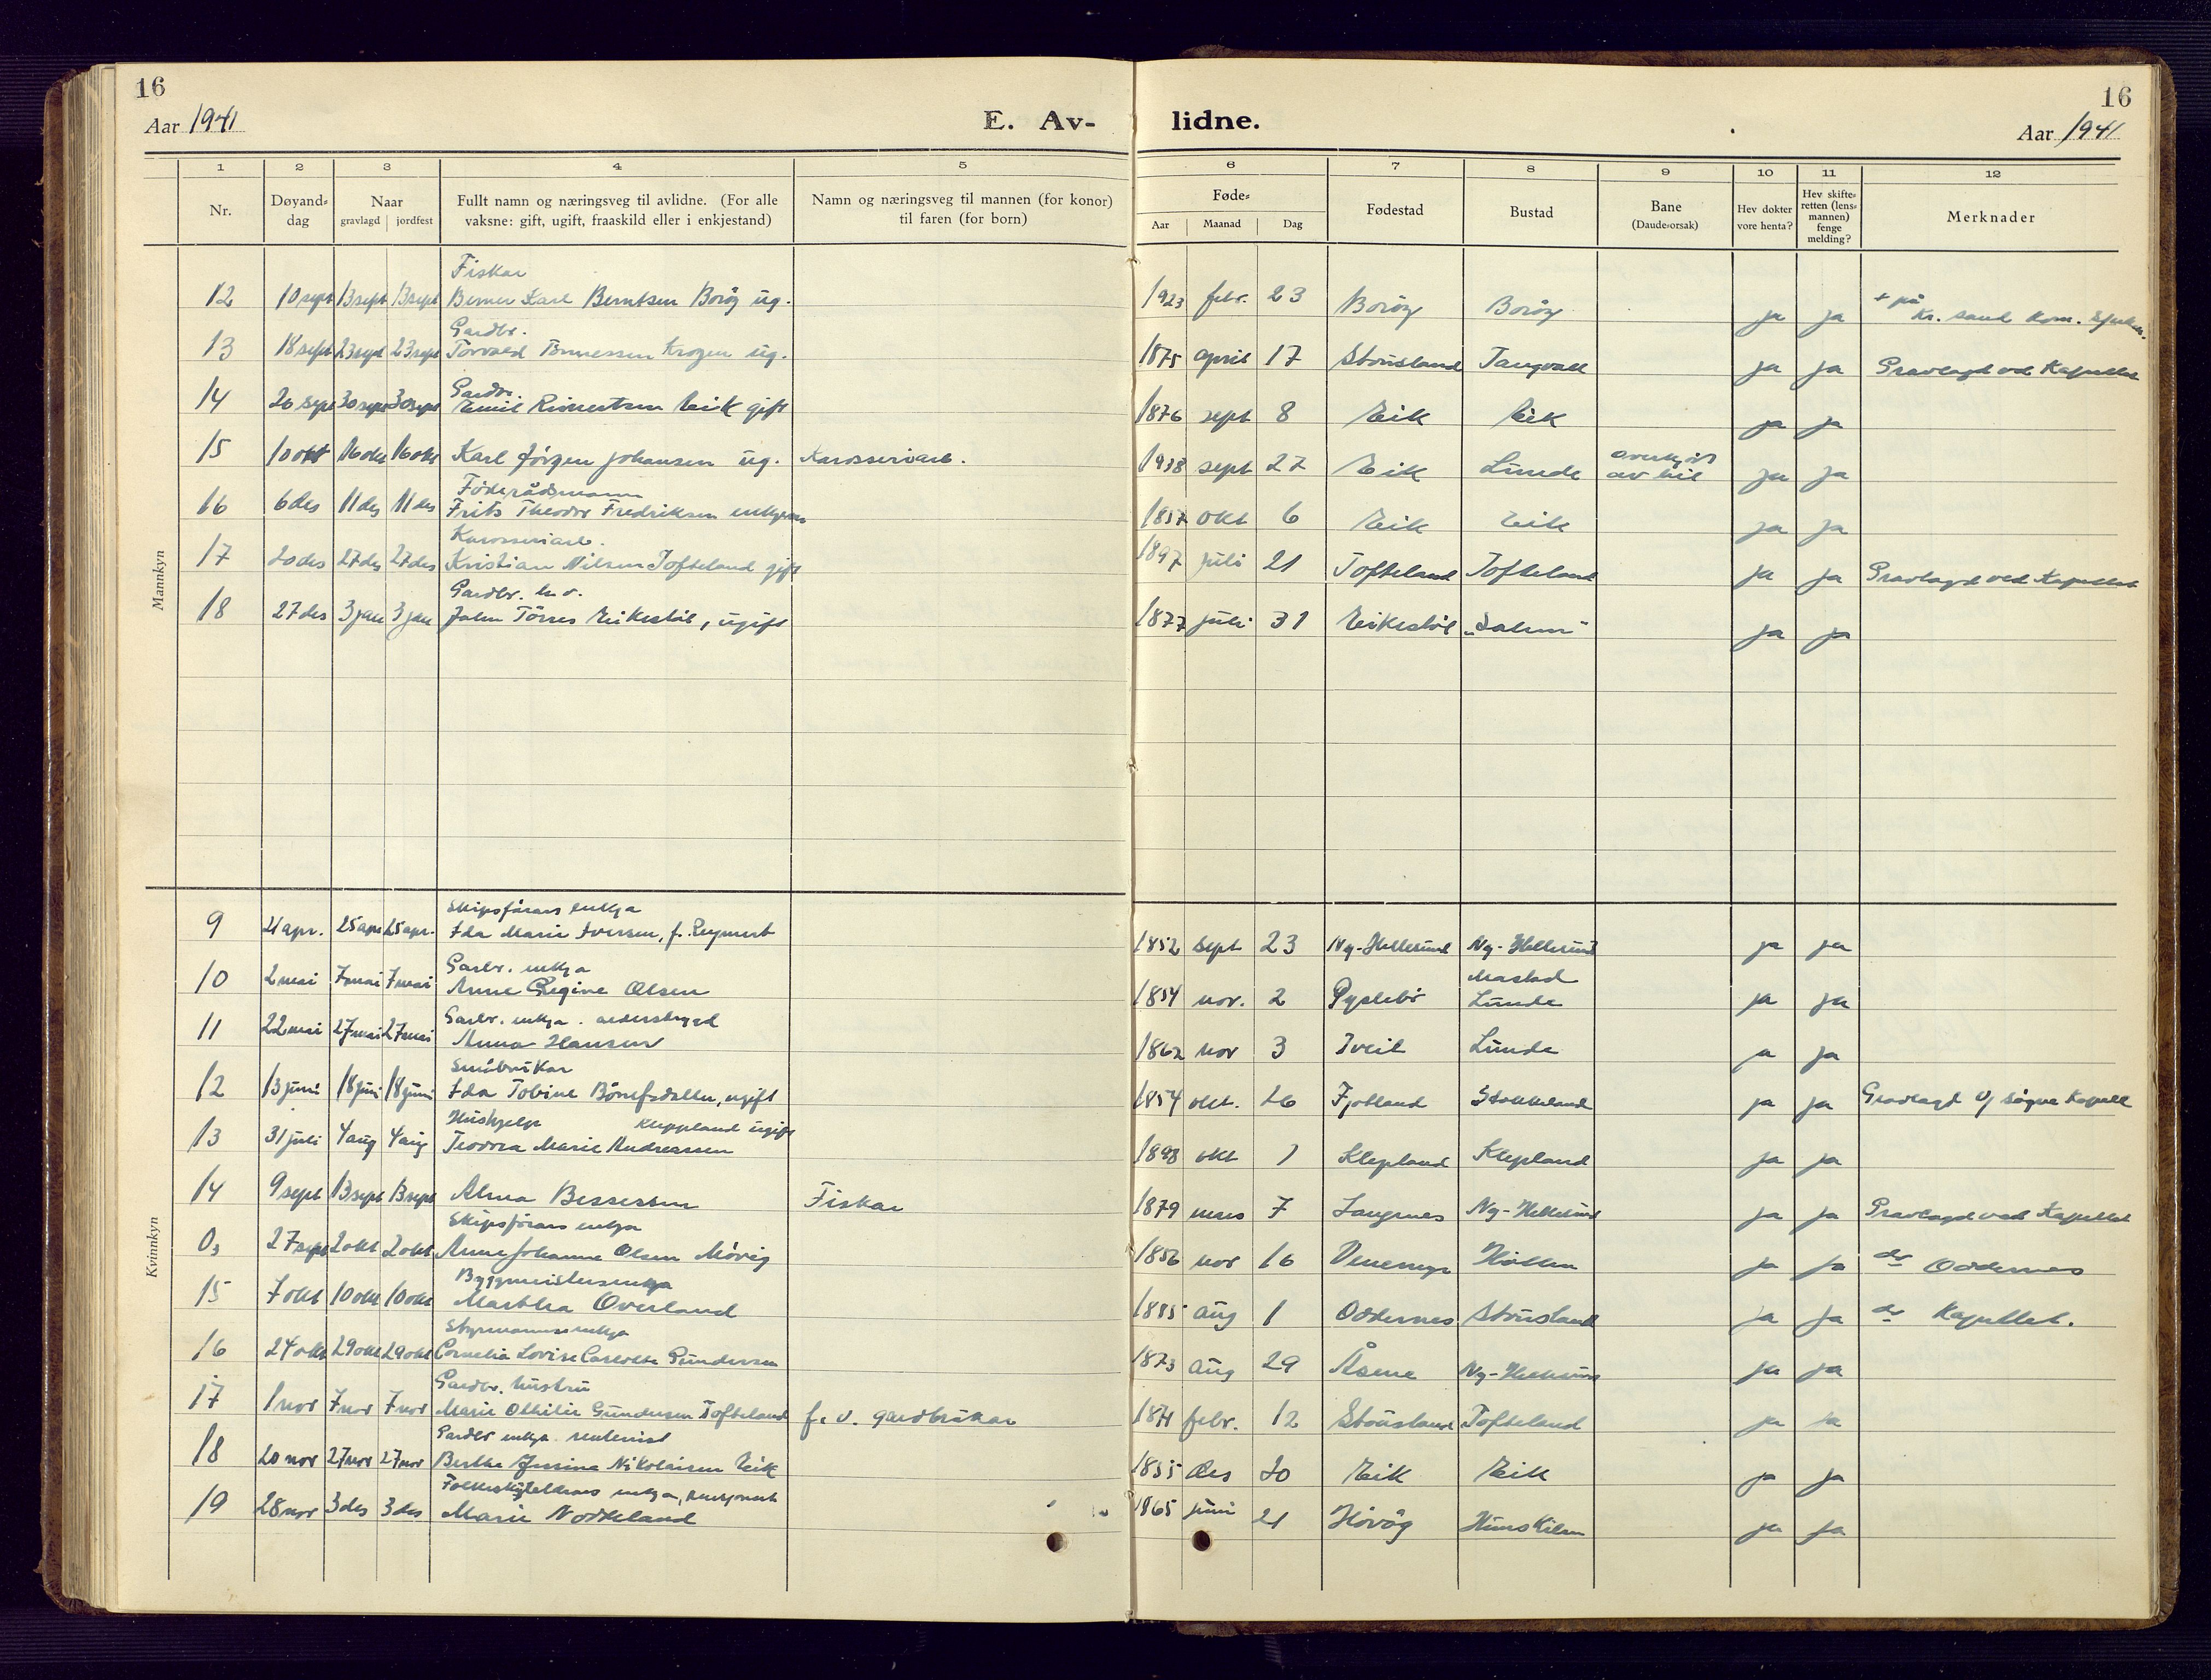 16
16
Aar 1941
E. Av-
lidne.
Aar 1941
1 2 3 4 5 6 7 8 9 10 11 12
Nr.
Døyand-
dag
Naar
gravlagd jordfest
Fullt namn og næringsveg til avlidne. (For alle
vaksne: gift, ugift, fraaskild eller i enkjestand)
Namn og næringsveg til mannen (for konor)
til faren (for born)
Føde-
Aar Maanad Dag
Fødestad
Bustad
Bane
(Daude-orsak)
Hev dokter
vore henta?
Hev skifte-
retten (lens-
mannen)
fenge
melding?
Merknader
Mannkyn
Fiskar
12 10 sept 13 sept 13 sept Berner Karl Berntsen Borøy ug. 1923 febr. 23 Borøy Borøy ja ja + på Kr. sand kom. sjukeh.
Gardbr.
13 18 sept 23 sept 23 sept Torvald Tønnessen Krogen ug. 1875 april 17 Stousland Tangvall ja ja Gravlagd ved Kapellet
Gardbr.
14 26 sept 30 sept 30 sept Emil Reinertsen Eik gift 1876 sept 8 Eik Eik ja ja
15 10 okt 16 okt 16 okt Karl Jørgen Johansen ug. Karosseriarb. 1938 sept 27 Eik Lunde overkjørt av bil ja ja
Føderådsmann
16 6 des 11 des 11 des Frits Theodor Fredriksen enkjem 1857 okt 6 Eik Eik ja ja
Karosseriarb.
17 20 des 27 des 27 des Kristian Nilsen Tofteland gift 1897 juli 21 Tofteland Tofteland ja ja Gravlagd ved Kapellet
Gardbr. h.v.
18 27 des 3 jan 3 jan John Tørres Eikestøl, ugift 1877 juli 31 Eikestøl "Salem" ja ja
Kvinnkyn
Skipsførars enkja
9 21 apr. 25 apr 25 apr. Ida Marie Iversen, f. Reymert 1852 sept 23 Ny-Hellesund Ny-Hellesund ja ja
Garbr. enkja
10 2 mai 7 mai 7 mai Anne Regine Olsen 1854 nov. 2 Pyslebø Mastad Lunde ja ja
Garbr. enkja. alderstrygd
11 22 mai 27 mai 27 mai Anna Hansen 1862 nov 3 Tveit Lunde ja ja
Småbrukar
12 13 juni 18 juni 18 juni Ida Tobine Bånefsdallen, ugift 1854 okt. 26 Fjotland Stokkeland ja ja Gravlagd v/ Søgne Kapell
Hushjelp Kleppland ugift
13 31 juli 4 aug 4 aug Teodora Marie Andreassen 1898 okt 1 Klepland Klepland ja ja
14 9 sept 13 sept 13 sept Alma Bessesen Fiskar 1879 mars 7 Langenes Ny-Hellesund ja ja Gravlagd ved Kapellet
Skipsførars enkja
0, 27 sept 2 okt 2 okt Anne Johanne Olsen Møvig 1856 nov 16 Venemyr Høllen ja ja do Oddernes
Byggmeistersenkja
15 7 okt 10 okt 10 okt Martha Overland 1885 aug 1 Oddernes Stousland ja ja do Kapellet.
Styrmannsenkja
16 24 okt 29 okt 29 okt Cornelia Lovise Carlotte Gundersen 1873 aug 29 Åsene Ny-Hellesund ja ja
Gardbr. hustru
17 1 nov 7 nov 7 nov Marie Othilie Gundersen Tofteland f. v. gardbrukar 1871 febr. 12 Stousland Tofteland ja ja
Gardbr enkja.
18 20 nov 27 nov 27 nov Berthe Jessine Nikolaisen Eik 1855 des 20 Eik Eik ja ja
enkja, pensjonert
19 28 nov 3 des 3 des Marie Nodeland 1865 juni 21 Høvåg ja ja